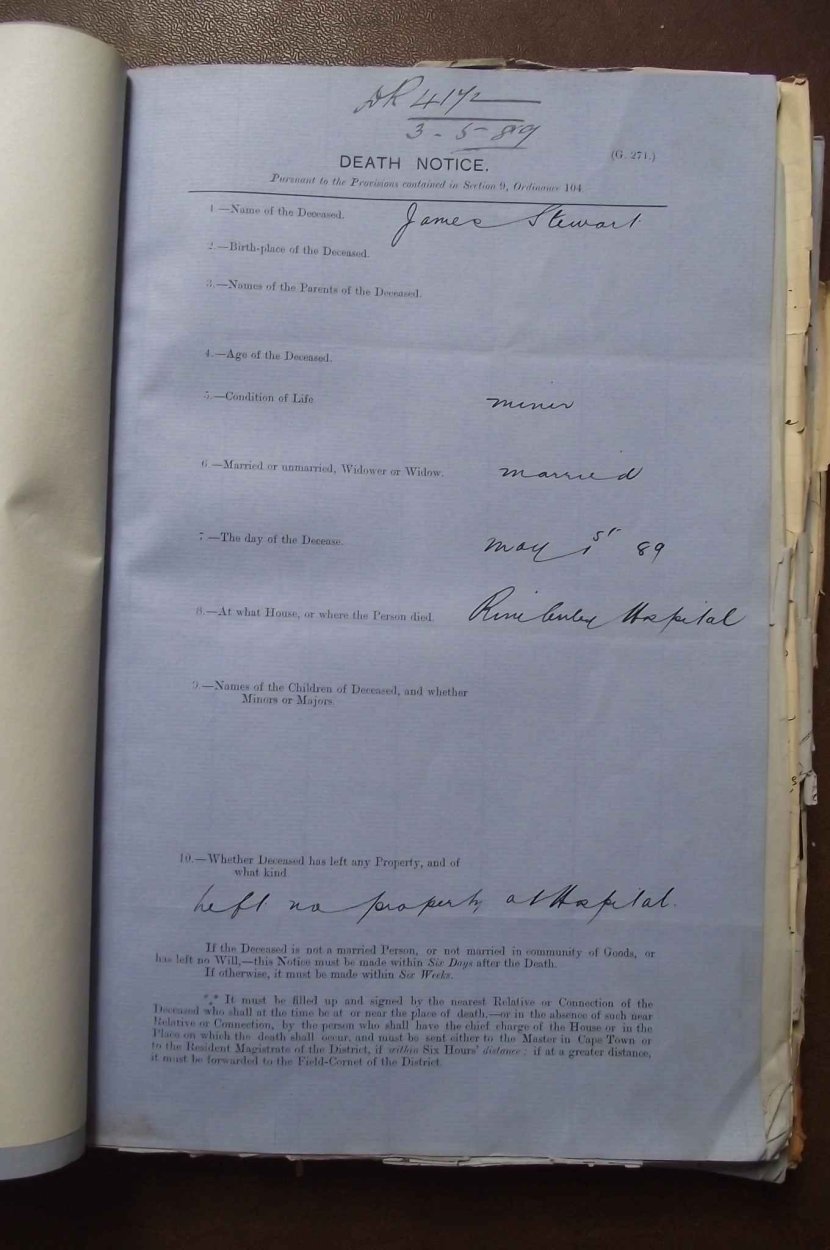 DR 4172
3-5-89
DEATH NOTICE.
(G. 271.)
Pursuant to the Provisions contained in Section 9, Ordinance 104
1.—Name of the Deceased. James Stewart
2.—Birth-place of the Deceased.
3.—Names of the Parents of the Deceased.
4.—Age of the Deceased.
5.—Condition of Life miner
6.—Married or unmarried, Widower or Widow. married
7.—The day of the Decease. may 1st 89
8.—At what House, or where the Person died. Kimberley Hospital
9.—Names of the Children of Deceased, and whether
Minors or Majors.
10.—Whether Deceased has left any Property, and of
what kind
Left no property at Hospital.
If the Deceased is not a married Person, or not married in community of Goods, or
has left no Will,—this Notice must be made within Six Days after the Death.
If otherwise, it must be made within Six Weeks.
*** It must be filled up and signed by the nearest Relative or Connection of the
Deceased who shall at the time be at or near the place of death,—or in the absence of such near
Relative or Connection, by the person who shall have the chief charge of the House or in the
Place on which the death shall occur, and must be sent either to the Master in Cape Town or
to the Resident Magistrate of the District, if within Six Hours' distance; if at a greater distance,
it must be forwarded to the Field-Cornet of the District.